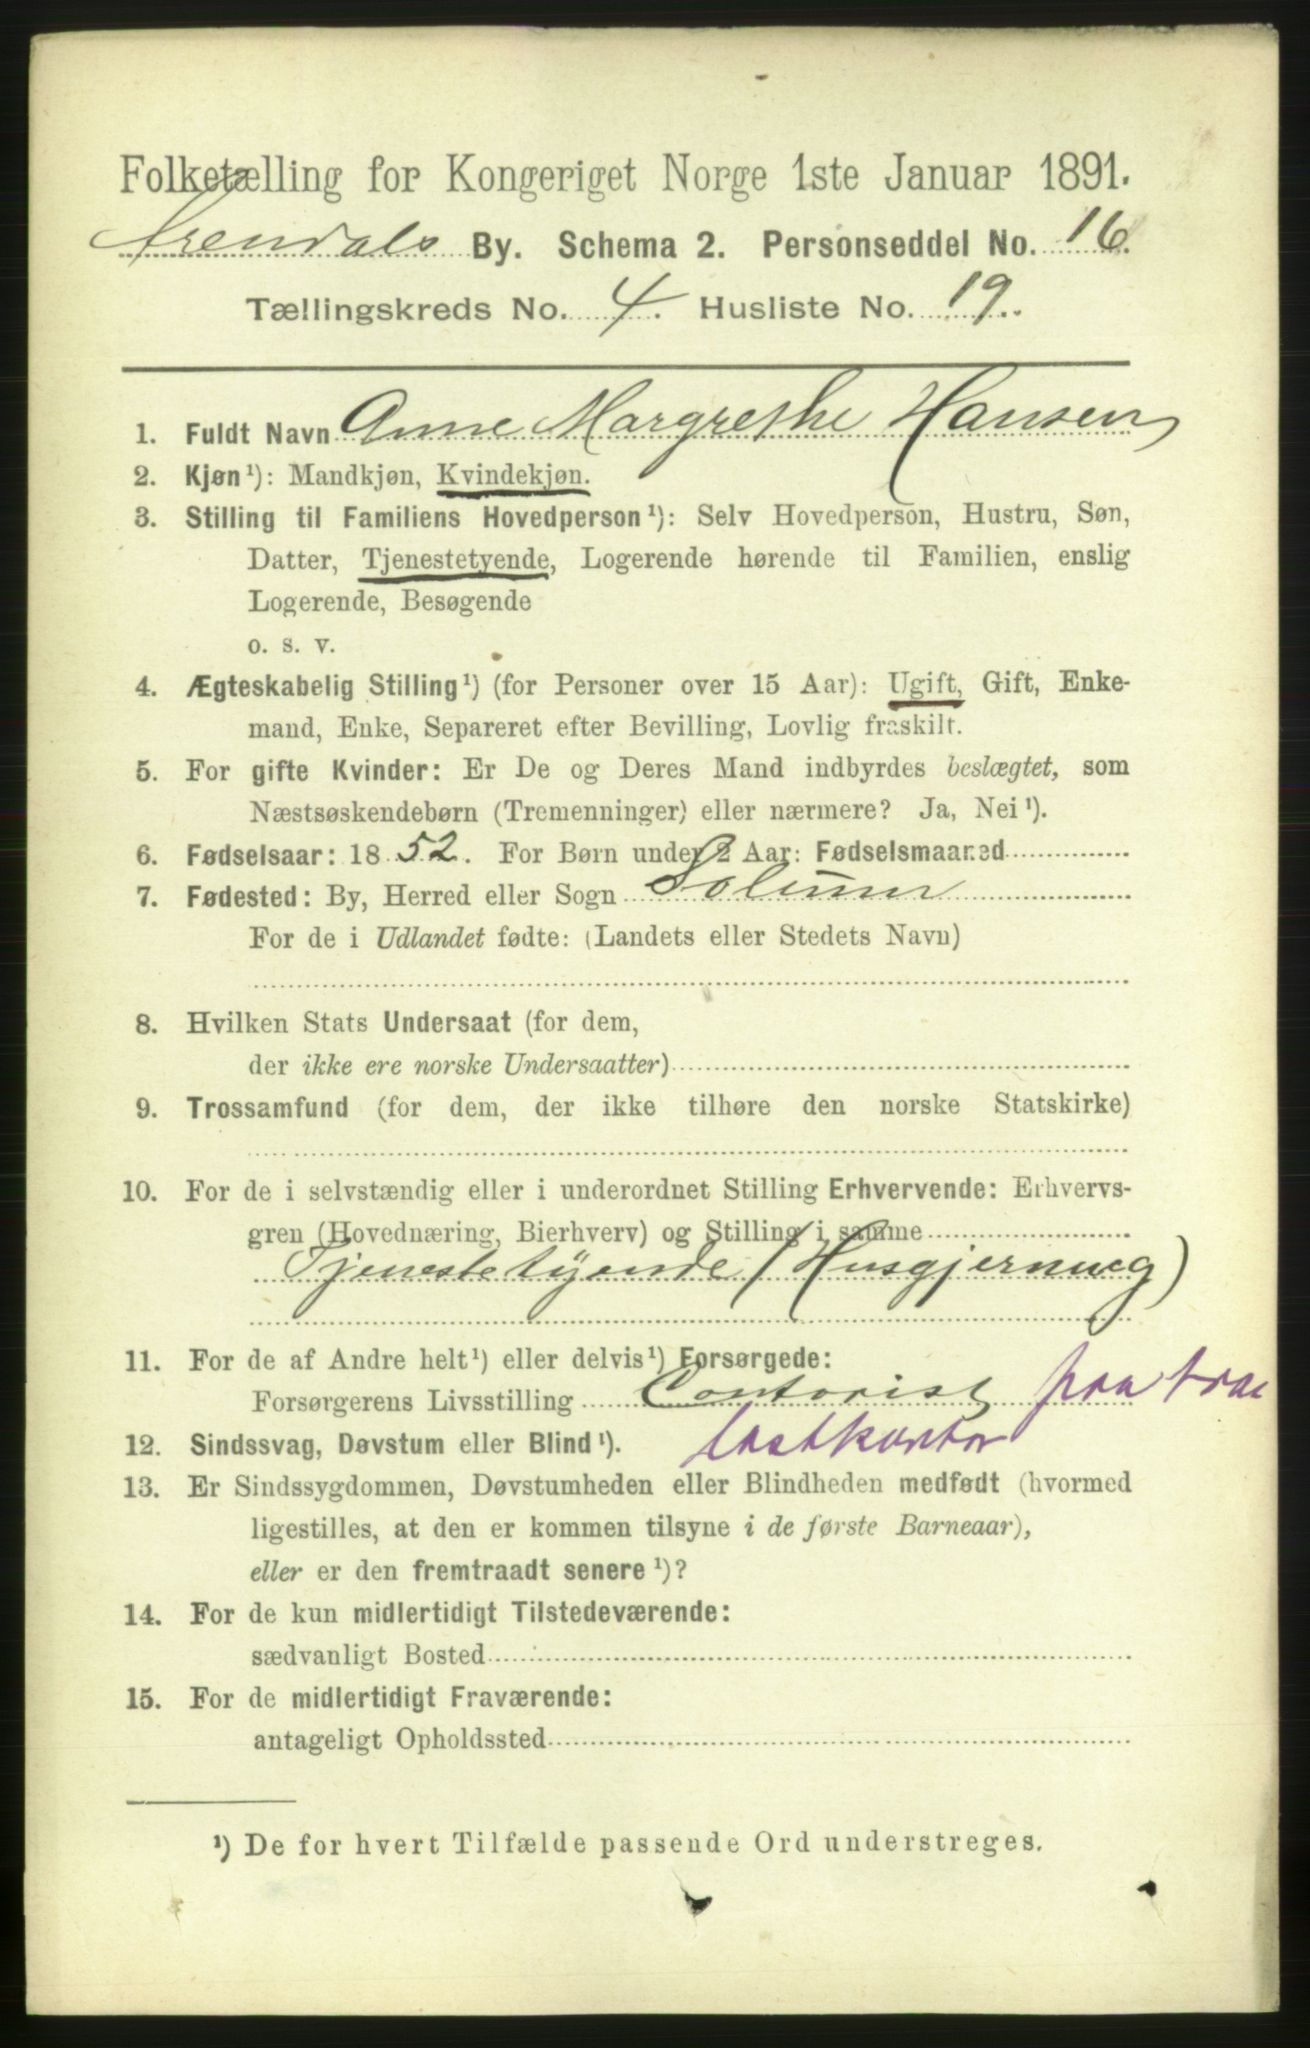 Folketælling for Kongeriget Norge 1ste Januar 1891.
Arendals By. Schema 2. Personseddel No. 16.
Tællingskreds No. 4. Husliste No. 19.
1. Fuldt Navn Anne Margrethe Hansen
2. Kjøn¹): Mandkjøn, Kvindekjøn.
3. Stilling til Familiens Hovedperson¹): Selv Hovedperson, Hustru, Søn,
Datter, Tjenestetyende, Logerende hørende til Familien, enslig
Logerende, Besøgende
o. s. v.
4. Ægteskabelig Stilling¹) (for Personer over 15 Aar): Ugift, Gift, Enke-
mand, Enke, Separeret efter Bevilling, Lovlig fraskilt.
5. For gifte Kvinder: Er De og Deres Mand indbyrdes beslægtet, som
Næstsøskendebørn (Tremenninger) eller nærmere? Ja, Nei¹).
6. Fødselsaar: 1852. For Børn under 2 Aar: Fødselsmaaned
7. Fødested: By, Herred eller Sogn Solum
For de i Udlandet fødte: (Landets eller Stedets Navn)
8. Hvilken Stats Undersaat (for dem,
der ikke ere norske Undersaatter)
9. Trossamfund (for dem, der ikke tilhøre den norske Statskirke)
10. For de i selvstændig eller i underordnet Stilling Erhvervende: Erhvervs-
gren (Hovednæring, Bierhverv) og Stilling i samme
Tjenestetyende (Husgjerning)
11. For de af Andre helt¹) eller delvis¹) Forsørgede:
Forsørgerens Livsstilling Contorist paa trae
lastkontor
12. Sindssvag, Døvstum eller Blind¹).
13. Er Sindssygdommen, Døvstumheden eller Blindheden medfødt (hvormed
ligestilles, at den er kommen tilsyne i de første Barneaar),
eller er den fremtraadt senere¹)?
14. For de kun midlertidigt Tilstedeværende:
sædvanligt Bosted
15. For de midlertidigt Fraværende:
antageligt Opholdssted
¹) De for hvert Tilfælde passende Ord understreges.